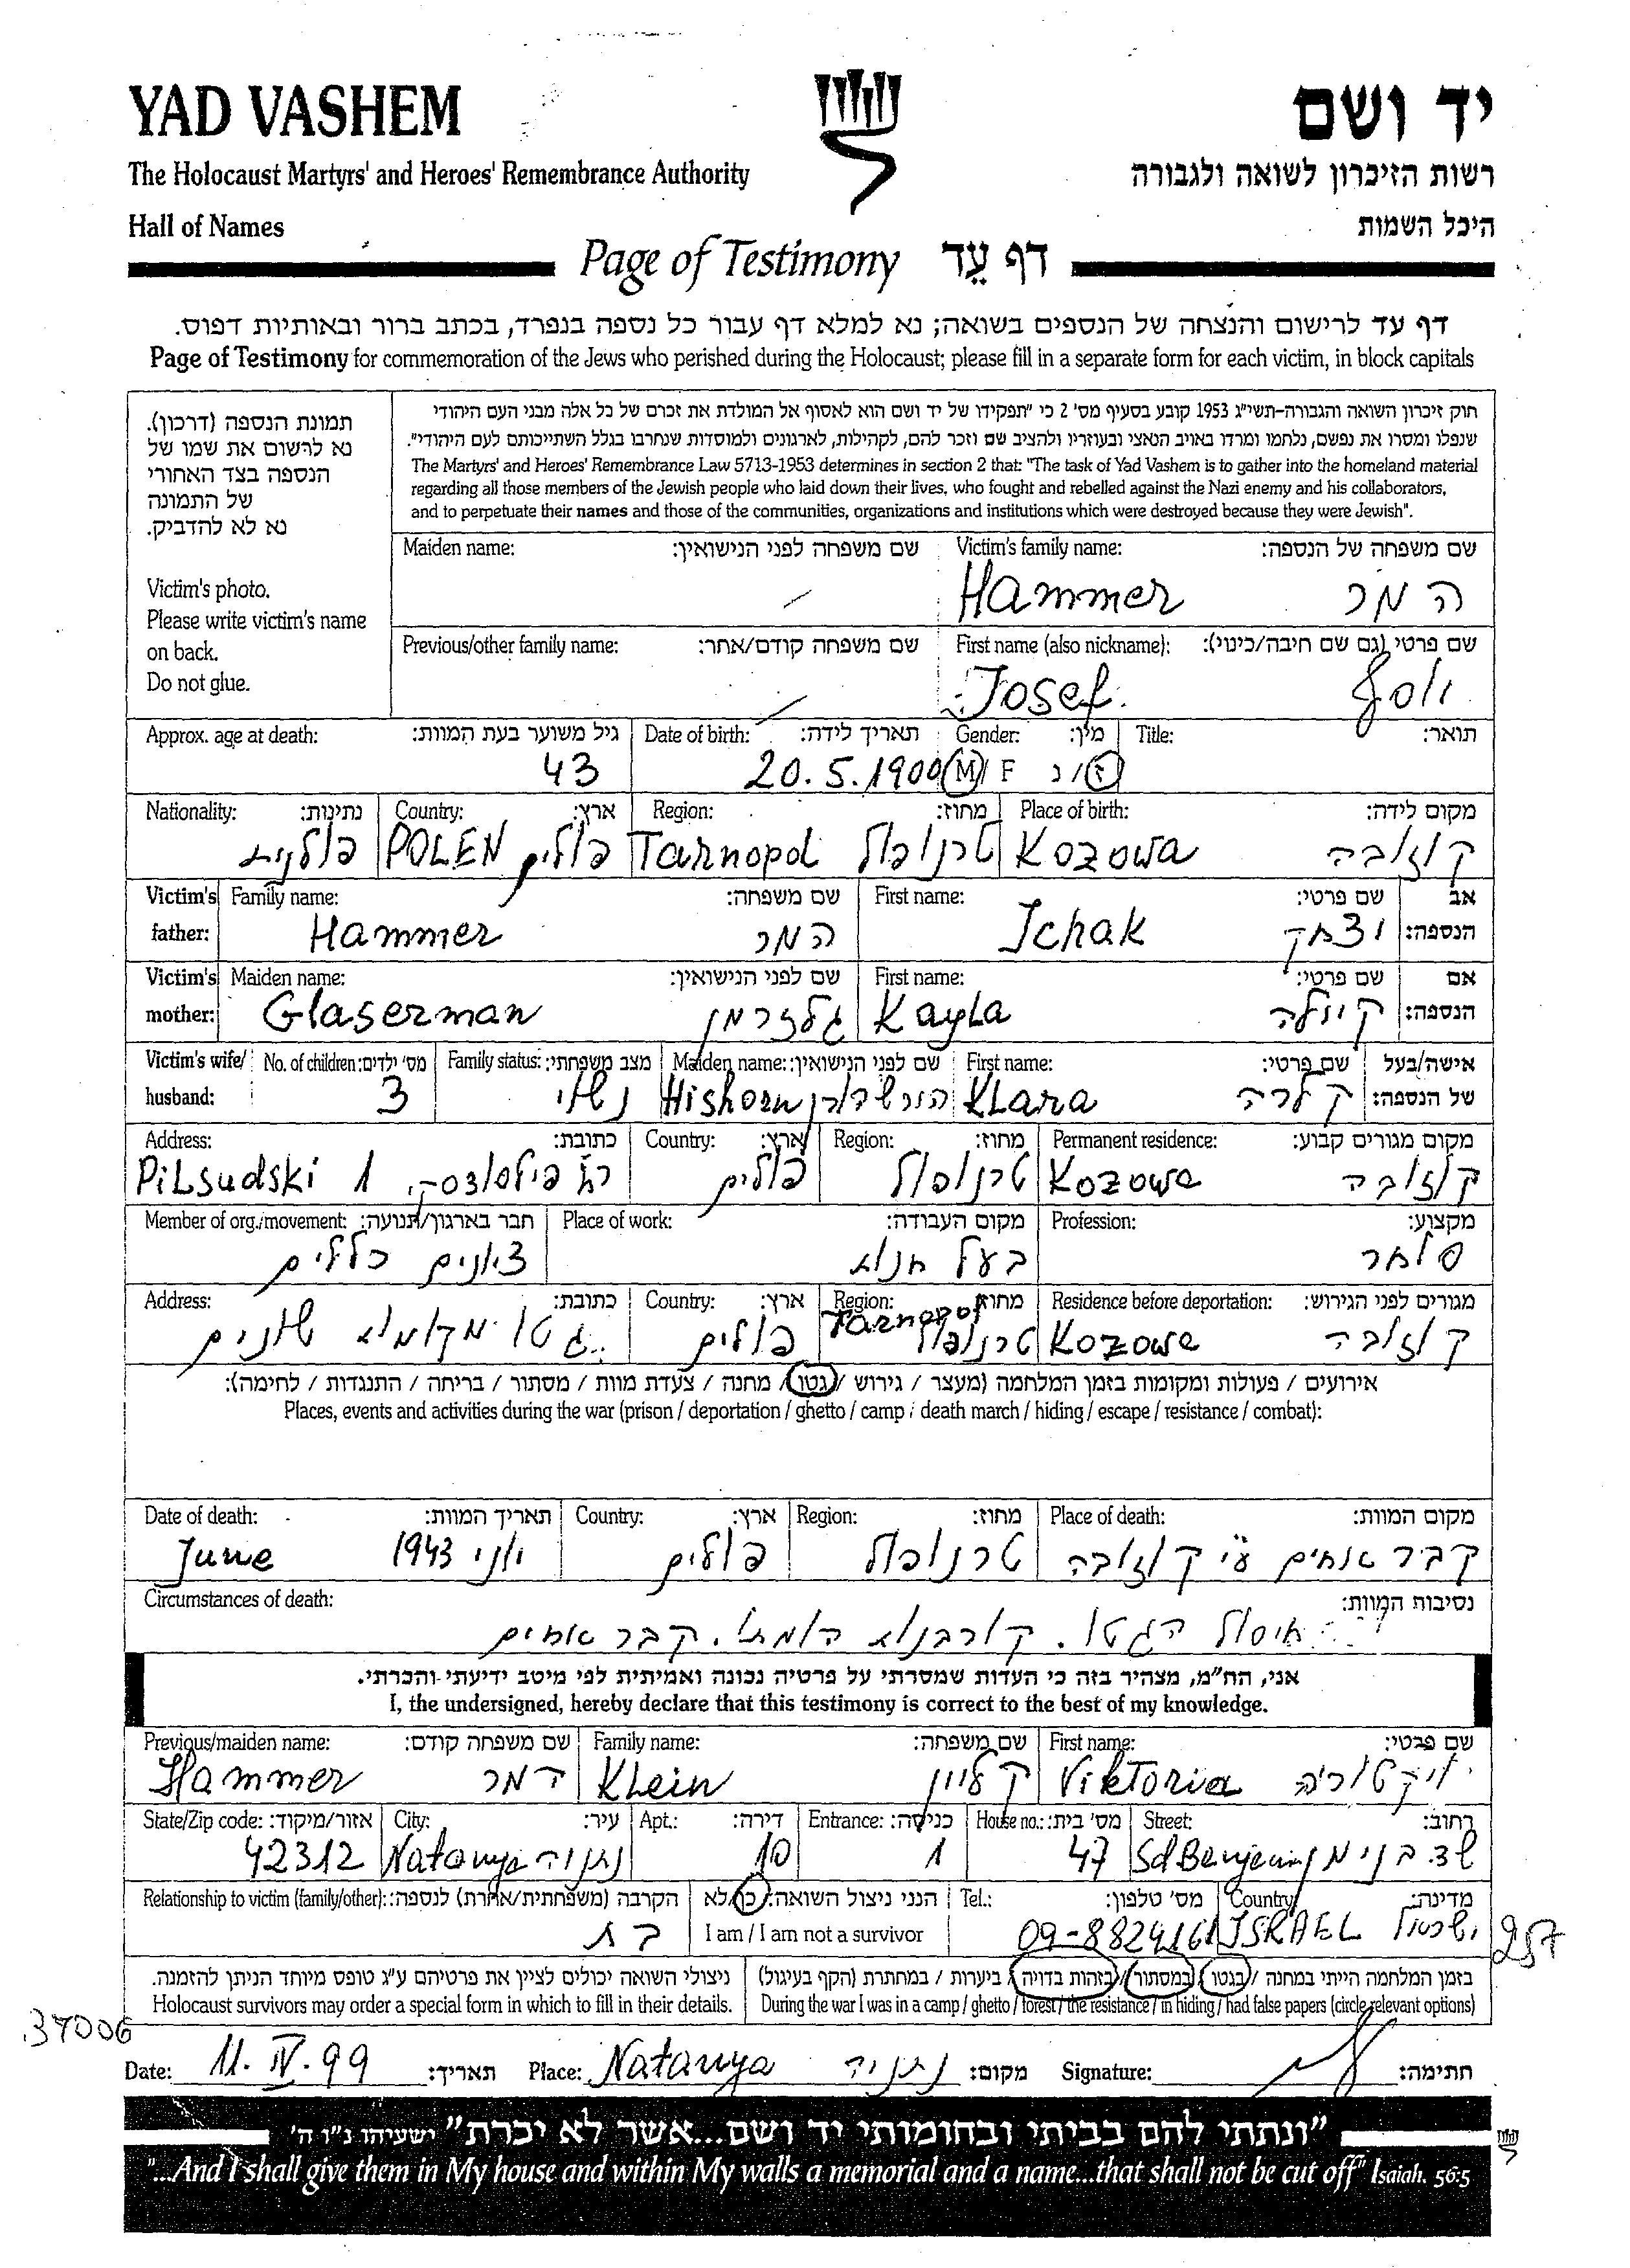 YAD VASHEM יד ושם
The Holocaust Martyrs' and Heroes' Remembrance Authority רשות הזיכרון לשואה ולגבורה
Hall of Names היכל השמות
Page of Testimony דף עֵד
דף עד לרישום והנצחה של הנספים בשואה; נא למלא דף עבור כל נספה בנפרד, בכתב ברור ובאותיות דפוס.
Page of Testimony for commemoration of the Jews who perished during the Holocaust; please fill in a separate form for each victim, in block capitals
תמונת הנספה (דרכון).
נא לרשום את שמו של
הנספה בצד האחורי
של התמונה
נא לא להדביק.
Victim's photo.
Please write victim's name
on back.
Do not glue.
חוק זיכרון השואה והגבורה-תשי"ג 1953 קובע בסעיף מס' 2 כי "תפקידו של יד ושם הוא לאסוף אל המולדת את זכרם של כל אלה מבני העם היהודי
שנפלו ומסרו את נפשם, נלחמו ומרדו באויב הנאצי ובעוזריו ולהציב שם וזכר להם, לקהילות, לארגונים ולמוסדות שנחרבו בגלל השתייכותם לעם היהודי".
The Martyrs' and Heroes' Remembrance Law 5713-1953 determines in section 2 that: "The task of Yad Vashem is to gather into the homeland material
regarding all those members of the Jewish people who laid down their lives, who fought and rebelled against the Nazi enemy and his collaborators,
and to perpetuate their names and those of the communities, organizations and institutions which were destroyed because they were Jewish".
Maiden name: שם משפחה לפני הנישואין: Victim's family name: שם משפחה של הנספה:
Hammer המר
Previous/other family name: שם משפחה קודם/אחר: First name (also nickname): שם פרטי (גם שם חיבה/כינוי):
Josef יוסף
Approx. age at death: גיל משוער בעת המוות: Date of birth: תאריך לידה: Gender: מין: Title: תואר:
43 20.5.1900 M/F ז/נ
Nationality: נתינות: Country: ארץ: Region: מחוז: Place of birth: מקום לידה:
פולנית POLEN פולין Tarnopol טרנופול Kozowa קוזובה
Victim's father: Family name: שם משפחה: First name: שם פרטי: אב הנספה:
Hammer המר Ichak יצחק
Victim's mother: Maiden name: שם לפני הנישואין: First name: שם פרטי: אם הנספה:
Glaserman גלזרמן Kayla קיילה
Victim's wife/husband: No. of children: מס' ילדים: Family status: מצב משפחתי: Maiden name: שם לפני הנישואין: First name: שם פרטי: אישה/בעל של הנספה:
3 נשוי Hishorn Klara קלרה
Address: כתובת: Country: ארץ: Region: מחוז: Permanent residence: מקום מגורים קבוע:
Pilsudski 1 רח פילסודסקי פולין טרנופול Kozowa קוזובה
Member of org./movement: חבר בארגון/תנועה: Place of work: מקום העבודה: Profession: מקצוע:
ציונים כלליים בעל חנות סוחר
Address: כתובת: Country: ארץ: Region: מחוז: Residence before deportation: מגורים לפני הגירוש:
גטו מקומות שונים פולין Tarnopol טרנופול Kozowa קוזובה
אירועים / פעולות ומקומות בזמן המלחמה (מעצר / גירוש / גטו / מחנה / צעדת מוות / מסתור / בריחה / התנגדות / לחימה):
Places, events and activities during the war (prison / deportation / ghetto / camp / death march / hiding / escape / resistance / combat):
Date of death: תאריך המוות: Country: ארץ: Region: מחוז: Place of death: מקום המוות:
June יוני 1943 פולין טרנופול קבר אחים ע"י קוזובה
Circumstances of death: נסיבות המוות:
חיסול הגטו. קורבנות המתו. קבר אחים
אני, הח"מ, מצהיר בזה כי העדות שמסרתי על פרטיה נכונה ואמיתית לפי מיטב ידיעתי והכרתי.
I, the undersigned, hereby declare that this testimony is correct to the best of my knowledge.
Previous/maiden name: שם משפחה קודם: Family name: שם משפחה: First name: שם פרטי:
Hammer המר Klein קליין Viktoria ויקטוריה
State/Zip code: אזור/מיקוד: City: עיר: Apt.: דירה: Entrance: כניסה: House no.: מס' בית: Street: רחוב:
42312 Natanya נתניה 10 1 47 Sd Benjemin שד. בנימין
Relationship to victim (family/other): הקרבה (משפחתית/אחרת) לנספה: הנני ניצול השואה: כן/לא Tel.: מס' טלפון: Country: מדינה:
בת I am / I am not a survivor 09-8824161 ISRAEL ישראל 257
ניצולי השואה יכולים לציין את פרטיהם ע"ג טופס מיוחד הניתן להזמנה. בזמן המלחמה הייתי במחנה / בגטו / במסתור / בזהות בדויה / ביערות / במחתרת (הקף בעיגול)
Holocaust survivors may order a special form in which to fill in their details. During the war I was in a camp / ghetto / forest / the resistance / in hiding / had false papers (circle relevant options)
37006
Date: 11.IV.99 תאריך: Place: Natanya נתניה מקום: Signature: חתימה:
"ונתתי להם בביתי ובחומותי יד ושם...אשר לא יכרת" ישעיהו נ"ו ה'
"...And I shall give them in My house and within My walls a memorial and a name...that shall not be cut off" Isaiah, 56:5